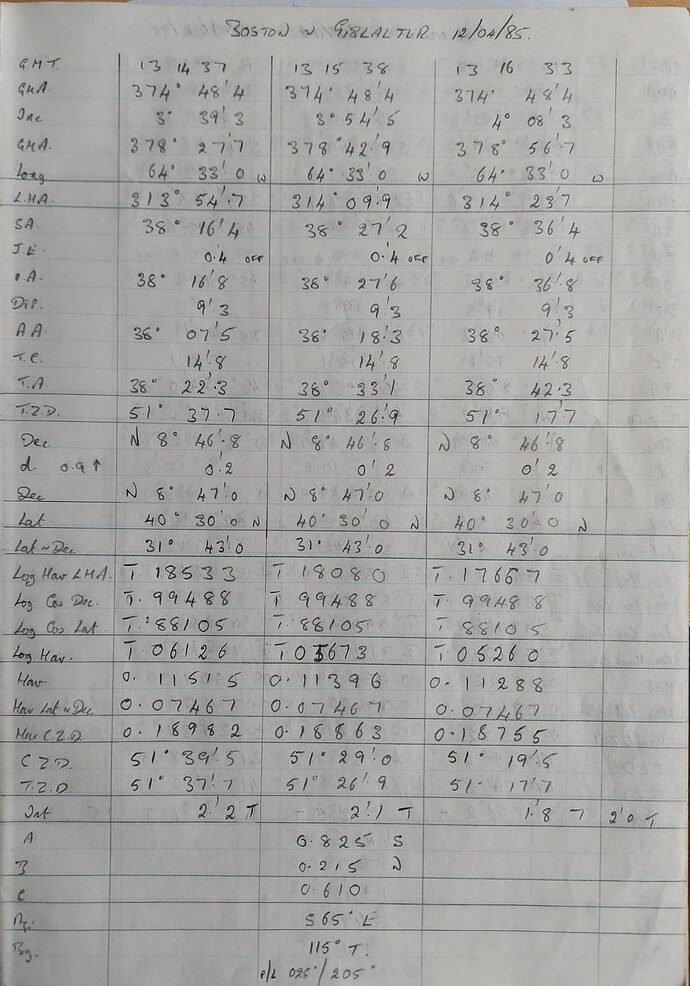 BOSTON ~ GIBLALTER 12/04/85.
G.M.T. 13 14 37 13 15 38 13 16 33
GHA. 374° 48'4 374° 48'4 374° 48'4
Inc 3° 39'3 3° 54'5 4° 08'3
GHA. 378° 27'7 378° 42'9 378° 56'7
Long 64° 33'0 W 64° 33'0 W 64° 33'0 W
L.H.A. 313° 54'7 314° 09'9 314° 23'7
SA. 38° 16'4 38° 27'2 38° 36'4
I.E. 0.4 OFF 0'4 OFF 0'4 OFF
O.A. 38° 16'8 38° 27'6 38° 36'8
Dip. 9'3 9'3 9'3
A A. 38° 07'5 38° 18'3 38° 27'5
T.C. 14'8 14'8 14'8
T.A. 38° 22'3 38° 33'1 38° 42'3
T.Z.D. 51° 37'7 51° 26'9 51° 17'7
Dec. N 8° 46'8 N 8° 46'8 N 8° 46'8
d. 0.9↑ 0'2 0'2 0'2
Dec N 8° 47'0 N 8° 47'0 N 8° 47'0
Lat. 40° 30'0 N 40° 30'0 N 40° 30'0 N
Lat~Dec 31° 43'0 31° 43'0 31° 43'0
Log Hav LHA. T.18533 T.18080 T.17667
Log Cos Dec. T.99488 T.99488 T.99488
Log Cos Lat. T.88105 T.88105 T.88105
Log Hav. T.06126 T.05673 T.05260
Hav 0.11515 0.11396 0.11288
Hav Lat~Dec 0.07467 0.07467 0.07467
Hav C.Z.D. 0.18982 0.18863 0.18755
C.Z.D. 51° 39'5 51° 29'0 51° 19'5
T.Z.D. 51° 37'7 51° 26'9 51° 17'7
Int 2'2 T 2'1 T 1'8 T 2'0 T
A 0.825 S
B 0.215 N
C 0.610
Azi. S 65° E
Bg. 115° T.
P/L 025°/205°